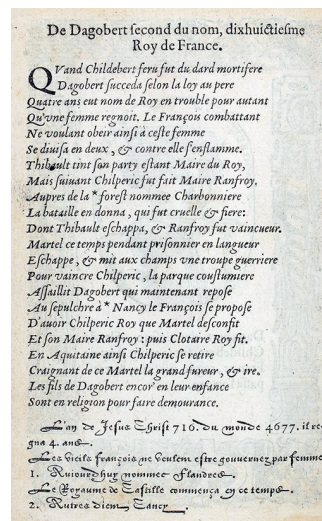 De Dagobert second du nom, dixhuictiesme
Roy de France.
QVand Childebert feru fut du dard mortifere
Dagobert succeda selon la loy au pere
Quatre ans eut nom de Roy en trouble pour autant
Qu'vne femme regnoit. Le François combattant
Ne voulant obeir ainsi à ceste femme
Se diuisa en deux, & contre elle s'enflamme.
Thibault tint son party estant Maire du Roy,
Mais suiuant Chilperic fut fait Maire Ranfroy,
Aupres de la * forest nommee Charbonniere
La bataille en donna, qui fut cruelle & fiere:
Dont Thibault eschappa, & Ranfroy fut vaincueur.
Martel ce temps pendant prisonnier en langueur
Eschappe, & mit aux champs vne troupe guerriere
Pour vaincre Chilperic, la parque coustumiere
Assaillit Dagobert qui maintenant repose
Au sepulchre à * Nancy le François se propose
D'auoir Chilperic Roy que Martel desconfit
Et son Maire Ranfroy: puis Clotaire Roy fit.
En Aquitaine ainsi Chilperic se retire
Craignant de ce Martel la grand fureur, & ire.
Les fils de Dagobert encor' en leur enfance
Sont en religion pour faire demourance.
L'an de Jesus Christ 716. du monde 4677. il re
gna 4. ans.
Les vieils françois ne veulent estre gouuernez par femme
1. Auiourdhuy nommee Flandres.
Le Royaume de Castille commença en ce temps.
2. Autres dient Cancy